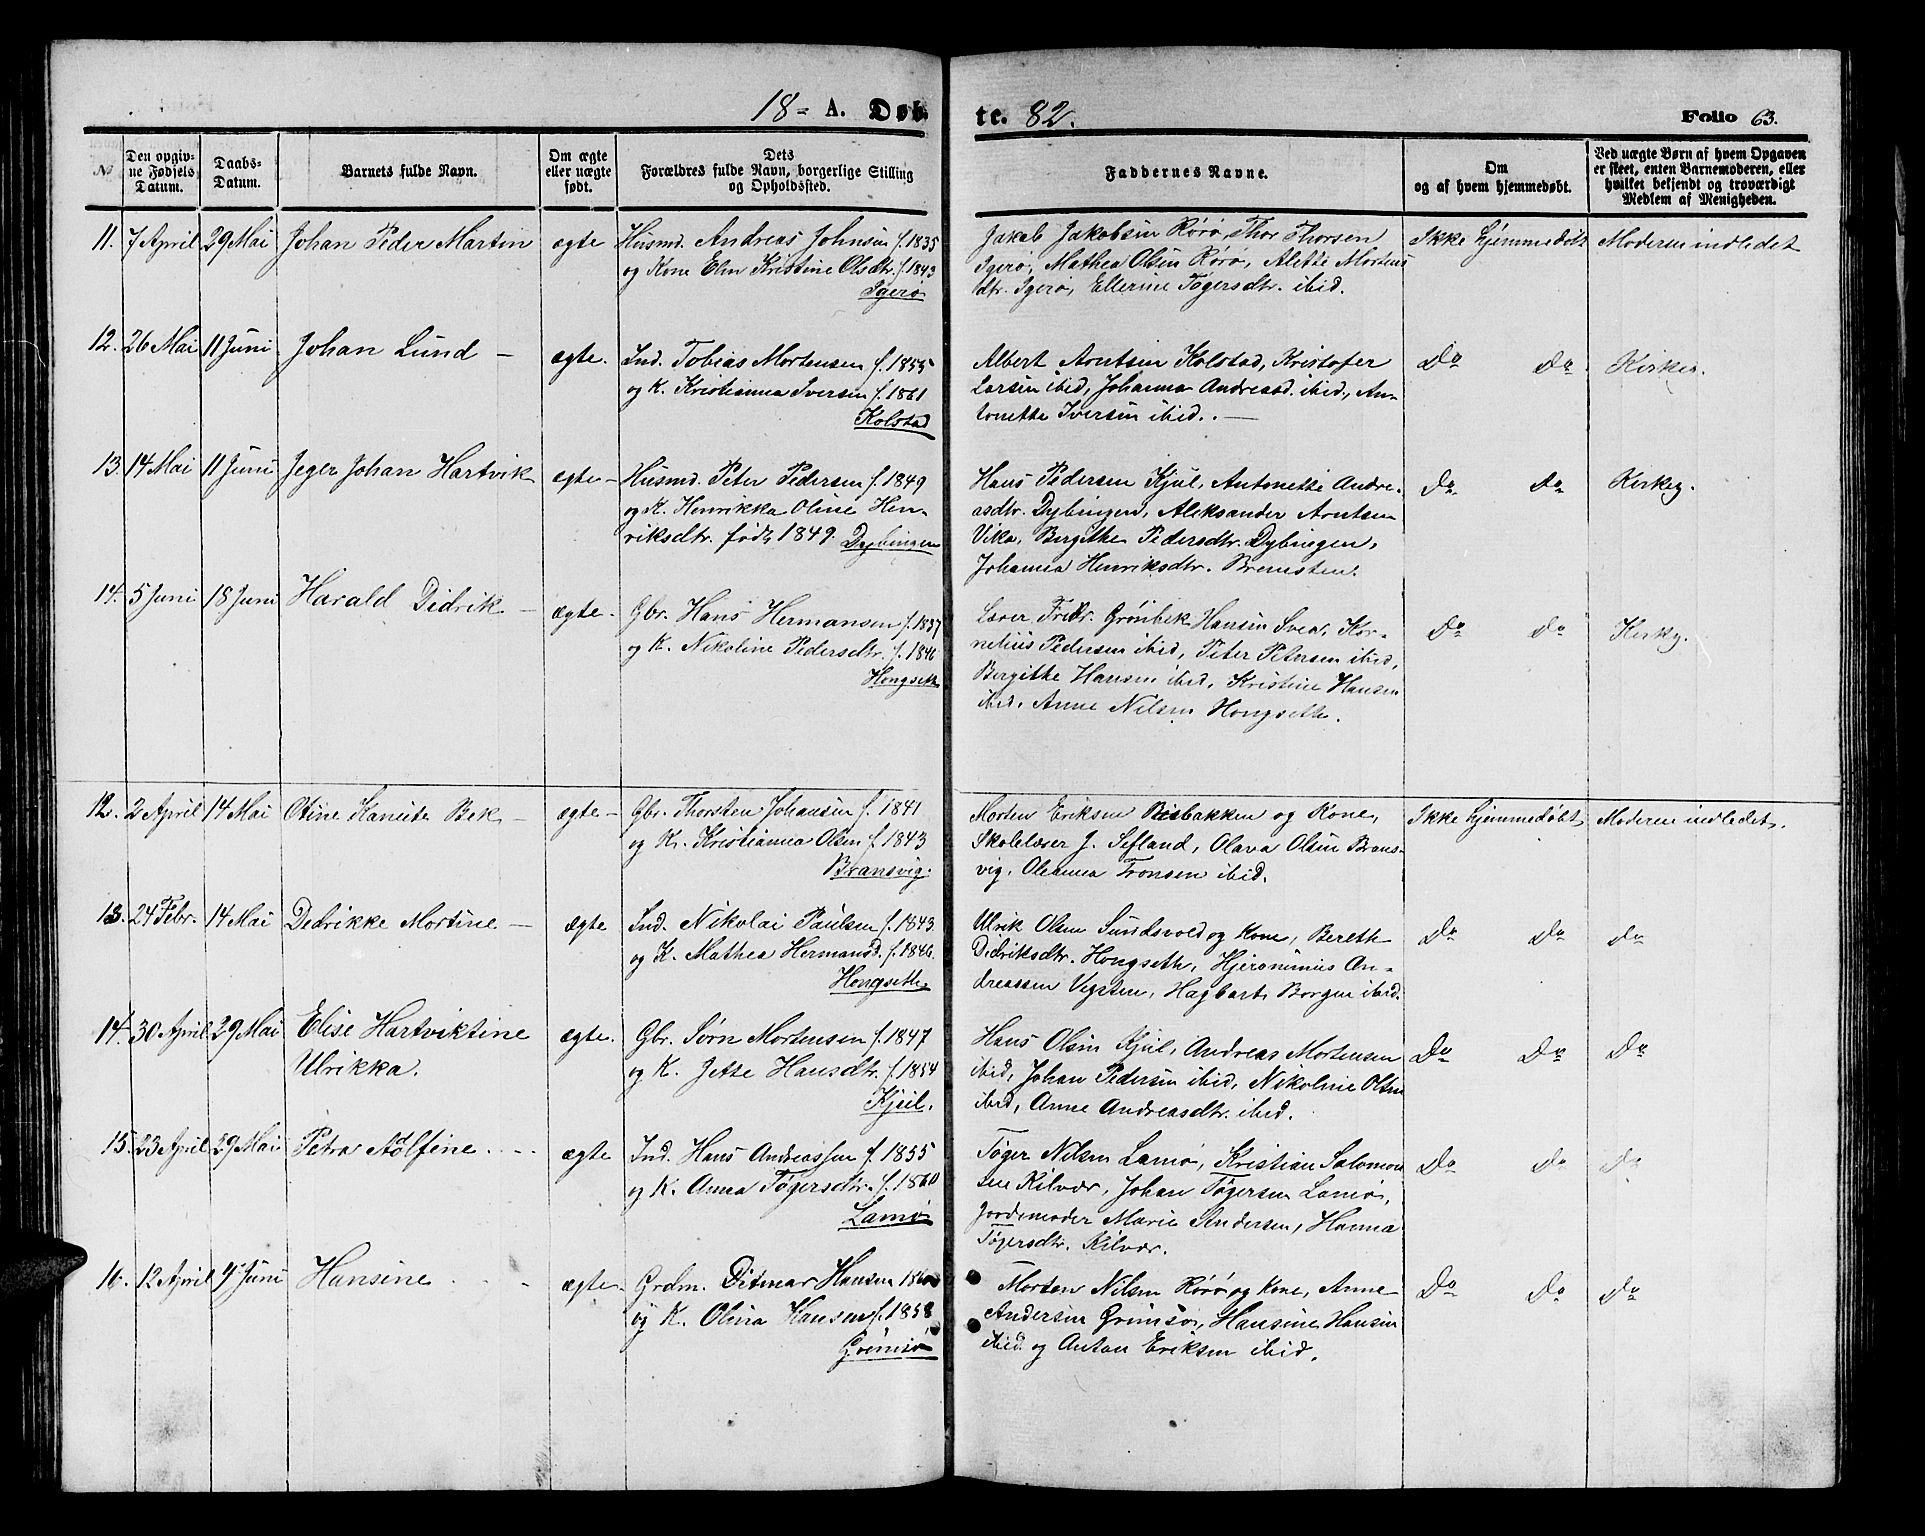 18- A. Døb-
te. 82.
Folio 63.
№
Den opgiv-
ne Fødsels
Datum.
Daabs-
Datum.
Barnets fulde Navn.
Om ægte
eller uægte
født.
Dets
Forældres fulde Navn, borgerlige Stilling
og Opholdssted.
Faddernes Navne.
Om
og af hvem hjemmedøbt.
Ved uægte Børn af hvem Opgaven
er skeet, enten Barnemoderen, eller
hvilket bekjendt og troværdigt
Medlem af Menigheden.
11. 7 April 29 Mai Johan Peder Martin ægte Husmd. Andreas Johnsen f. 1835
og Kone Elen Kristine Olsdtr. f. 1843
Igerø
Jakob Jakobsen Rørø, Thor Thorsen
Igerø, Mathea Olsen Rørø, Alette Mortens
dtr. Igerø, Ellerine Tøgersdtr. ibid.
Ikke hjemmedøbt Moderen indledet
12. 26 Mai 11 Juni Johan Lund – ægte. Ind. Tobias Mortensen f. 1855
og K. Kristianna Iversen f. 1861
Kolstad
Albert Arntsen Kolstad, Kristofer
Larsen ibid, Johanna Andreasd. ibid., An-
tonette Iversen ibid. –
Do Do Kirkeg.
13. 14 Mai 11 Juni Jeger Johan Hartvik ægte – Husmd. Peter Pedersen f. 1849
og K. Henrikka Oline Hen-
riksdtr. født 1849. Dybingen
Hans Pedersen Kjul, Antonette Andre-
asdtr. Dybingen, Aleksander Arntsen
Vika, Bergithe Pedersdtr. Dybingen,
Johanna Henriksdtr. Bremsten.
Do Do Kirkeg.
14. 5 Juni 18 Juni Harald Didrik – ægte – Gbr. Hans Hermansen f. 1837
og K. Nikoline Pedersdtr. f. 1846
Hongseth
Lærer Fredr. Grønbek Hansen Svea, Kor-
nelius Pedersen ibid, Peter Petersen ibid,
Bergithe Hansen ibid, Kristine Hansen
ibid, Anne Nilsen Hongseth.
Do Do Kirkeg.
12. 2 April 14 Mai Otine Kanute Bek – ægte – Gbr. Thorsten Johansen f. 1841
og K. Kristianna Olsen f. 1843
Bransvig.
Morten Eriksen Risbakken og Kone,
Skolelærer J. Sefland, Olava Olsen Brans-
vig, Oleanna Tronsen ibid.
Ikke hjemmedøbt Moderen indledet.
13. 24 Febr. 14 Mai Didrikke Mortine – ægte Ind. Nikolai Paulsen f. 1843.
og K. Mathea Hermansd. f. 1846.
Hongseth.
Ulrik Olsen Sundsvold og Kone, Bereth
Didriksdtr. Hongseth, Hjeronimus An-
dreassen Vegsten, Hagbart Borgen ibid.
Do Do Do
14. 30 April 29 Mai Elise Hartviktine
Ulrikka.
ægte. Gbr. Sørn Mortensen f. 1847
og K. Jette Hansdtr. f. 1854
Kjul.
Hans Olsen Kjul, Andreas Mortensen
ibid, Johan Pedersen ibid, Nikoline Olsen
ibid, Anne Andreasdtr. ibid.
Do Do Do
15. 23 April 29 Mai Petra Adlfine ægte Ind. Hans Andreassen f. 1855
og K. Anna Tøgersdtr. f. 1860
Lamø
Tøger Nilsen Lamø, Kristian Salomon
sen Kilvær, Johan Tøgersen Lamø,
Jordemoder Marie Andersen, Hanna
Tøgersdtr. Kilvær.
Do Do Do
16. 12 April 4 Juni Hansine ægte – Grdm. Ditmar Hansen
og K. Olina Hansen f. 1858
Grimsø
Morten Nilsen Rørø og Kone, Anne
Andersen Grimsø, Hansine Hansen
ibid. og Anton Eriksen ibid.
Do Do Do